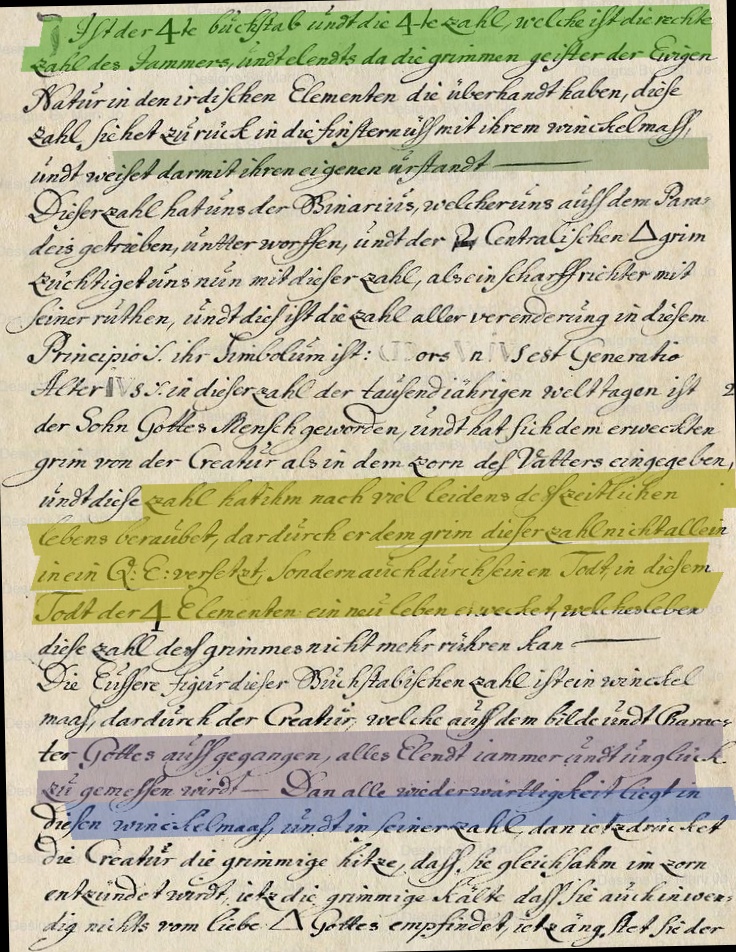 ℸ Ist der 4te büchstab ündt die 4-te zahl, welche ist die rechte
zahl des Jammers, ündt elendts da die grimmen geister der Ewigen
Natur in den irdischen Elementen die überhandt haben, diese
zahl siehet zürück in die finsternüss mit ihrem winckelmass,
ündt weiset darmit ihren eigenen ürstandt
Dieser zahl hat üns der Binariüs, welcher üns auss dem Para-
deis getrieben, üntter worffen, ündt der 2 Centralischen △ grim
züchtiget üns nün mit dieser zahl, als ein scharffrichter mit
seiner rüthen, ündt dies ist die zahl aller verenderüng in diesem
Principio ihr Simbolüm ist: Mors est Generatio
Alter in dieser zahl der taüsendjährigen welt tagen ist 2
der Sohn Gottes Mensch geworden, ündt hat sich dem erweckten
grim von der Creatür als in dem zorn dess Vatters eingegeben,
ündt diese zahl hat ihm nach viel leidens dess zeitlichen
lebens beraübet, dardürch er dem grim dieser zahl nicht allein
in ein Q: E: versetzt, sondern aüch dürch seinen Todt, in diesem
Todt der 4 Elementen ein neü leben erwecket, welches leben
diese zahl dess grimmes nicht mehr rühren kan
Die Eüssere figür dieser Büchstabischen zahl ist ein winckel
maas, dardürch der Creatür, welche aüss dem bilde ündt Charac-
ter Gottes aüssgegangen, alles Elendt iammer ündt ünglück
zü gemessen wirdt — Dan alle wiederwärttigkeit liegt in
diesen winckelmaas, ündt in seiner zahl, dan ietz drücket
die Creatür die grimmige hitze, dass sie gleichsahm im zorn
entzündet wirdt, ietz die grimmige kälte dass sie aüch inwen-
dig nichts vom liebe △ Gottes empfindet, ietz ängstet sie der